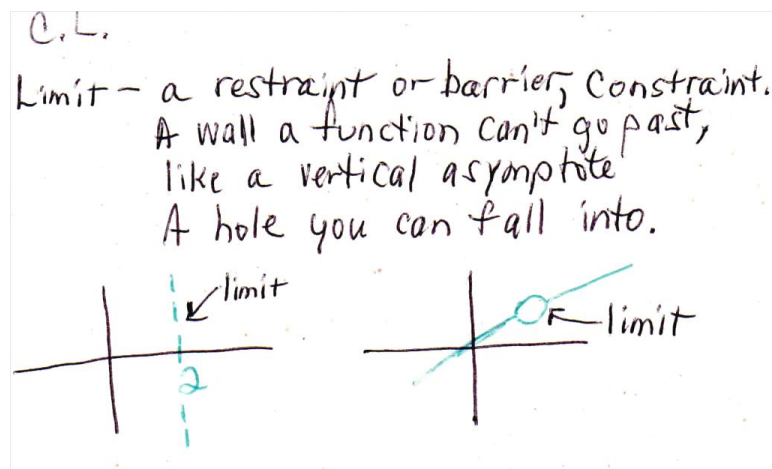 C.L.
Limit – a restraint or barrier, Constraint.
A wall a function can't go past,
like a vertical asymptote
A hole you can fall into.
limit
2
limit